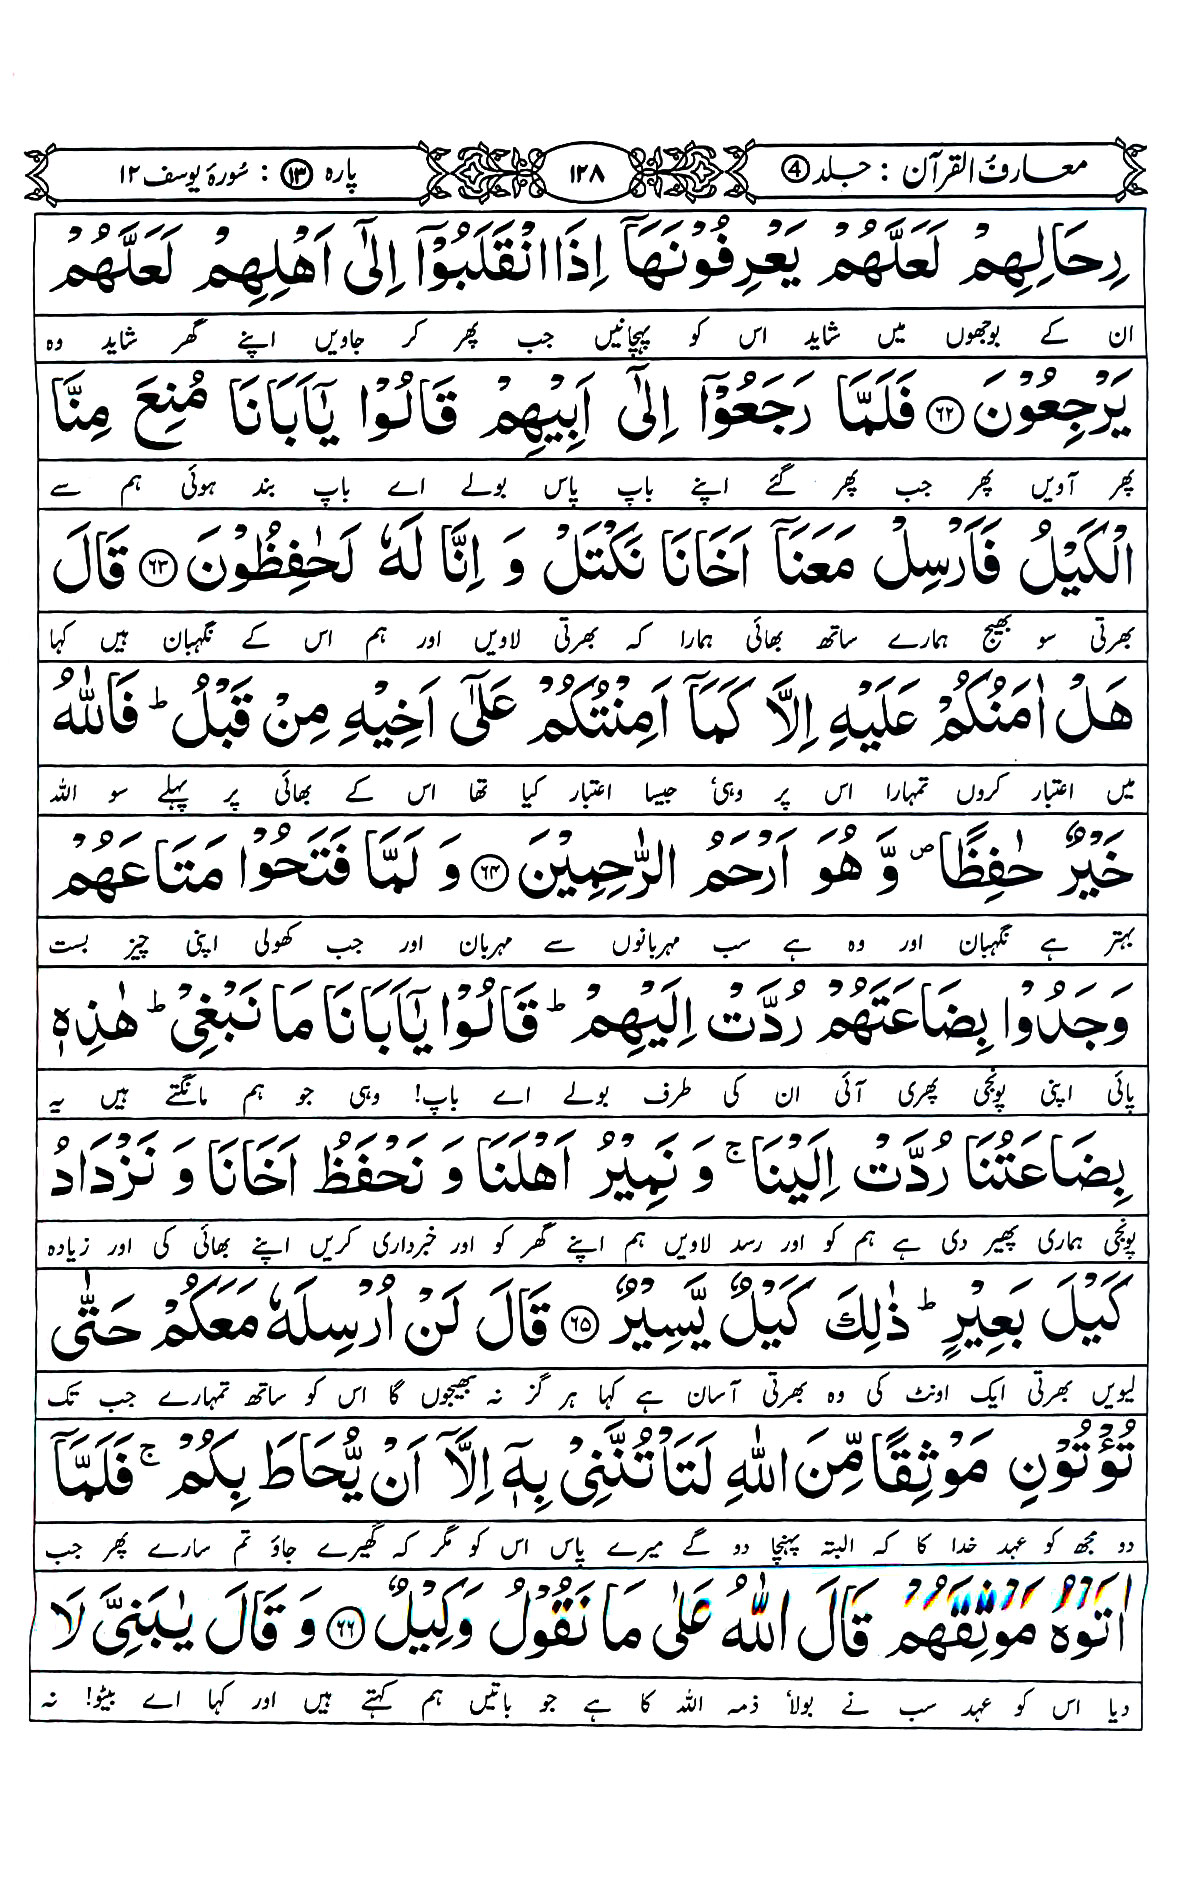 معارف القرآن : جلد ④ ۱۲۸ پارہ ⑬ : سُورہ یوسف ۱۲
رِحَالِهِمْ لَعَلَّهُمْ يَعْرِفُوْنَهَاۤ اِذَا انْقَلَبُوْۤا اِلٰۤى اَهْلِهِمْ لَعَلَّهُمْ
ان کے بوجھوں میں شاید اس کو پہچانیں جب پھر کر جاویں اپنے گھر شاید وہ
يَرْجِعُوْنَ ۶۲ فَلَمَّا رَجَعُوْۤا اِلٰۤى اَبِيْهِمْ قَالُوْا يٰۤاَبَانَا مُنِعَ مِنَّا
پھر آویں پھر جب پھر گئے اپنے باپ پاس بولے اے باپ بند ہوئی ہم سے
الْكَيْلُ فَاَرْسِلْ مَعَنَاۤ اَخَانَا نَكْتَلْ وَ اِنَّا لَهٗ لَحٰفِظُوْنَ ۶۳ قَالَ
بھرتی سو بھیج ہمارے ساتھ بھائی ہمارا کہ بھرتی لاویں اور ہم اس کے نگہبان ہیں کہا
هَلْ اٰمَنُكُمْ عَلَيْهِ اِلَّا كَمَاۤ اَمِنْتُكُمْ عَلٰۤى اَخِيْهِ مِنْ قَبْلُ ؕ فَاللّٰهُ
میں اعتبار کروں تمہارا اس پر وہی جیسا اعتبار کیا تھا اس کے بھائی پر پہلے سو اللہ
خَيْرٌ حٰفِظًا ۪ وَّ هُوَ اَرْحَمُ الرّٰحِمِيْنَ ۶۴ وَ لَمَّا فَتَحُوْا مَتَاعَهُمْ
بہتر ہے نگہبان اور وہ ہے سب مہربانوں سے مہربان اور جب کھولی اپنی چیز بست
وَجَدُوْا بِضَاعَتَهُمْ رُدَّتْ اِلَيْهِمْ ؕ قَالُوْا يٰۤاَبَانَا مَا نَبْغِيْ ؕ هٰذِهٖ
پائی اپنی پونجی پھری آئی ان کی طرف بولے اے باپ! وہی جو ہم مانگتے ہیں یہ
بِضَاعَتُنَا رُدَّتْ اِلَيْنَا ۚ وَ نَمِيْرُ اَهْلَنَا وَ نَحْفَظُ اَخَانَا وَ نَزْدَادُ
پونجی ہماری پھیر دی ہے ہم کو اور رسد لاویں ہم اپنے گھر کو اور خبرداری کریں اپنے بھائی کی اور زیادہ
كَيْلَ بَعِيْرٍ ؕ ذٰلِكَ كَيْلٌ يَّسِيْرٌ ۶۵ قَالَ لَنْ اُرْسِلَهٗ مَعَكُمْ حَتّٰى
لیویں بھرتی ایک اونٹ کی وہ بھرتی آسان ہے کہا ہر گز نہ بھیجوں گا اس کو ساتھ تمہارے جب تک
تُؤْتُوْنِ مَوْثِقًا مِّنَ اللّٰهِ لَتَاْتُنَّنِيْ بِهٖۤ اِلَّاۤ اَنْ يُّحَاطَ بِكُمْ ۚ فَلَمَّاۤ
دو مجھ کو عہد خدا کا کہ البتہ پہنچا دو گے میرے پاس اس کو مگر کہ گھیرے جاؤ تم سارے پھر جب
اٰتَوْهُ مَوْثِقَهُمْ قَالَ اللّٰهُ عَلٰى مَا نَقُوْلُ وَكِيْلٌ ۶۶ وَ قَالَ يٰبَنِيَّ لَا
دیا اس کو عہد سب نے بولا ذمہ اللہ کا ہے جو باتیں ہم کہتے ہیں اور کہا اے بیٹو! نہ